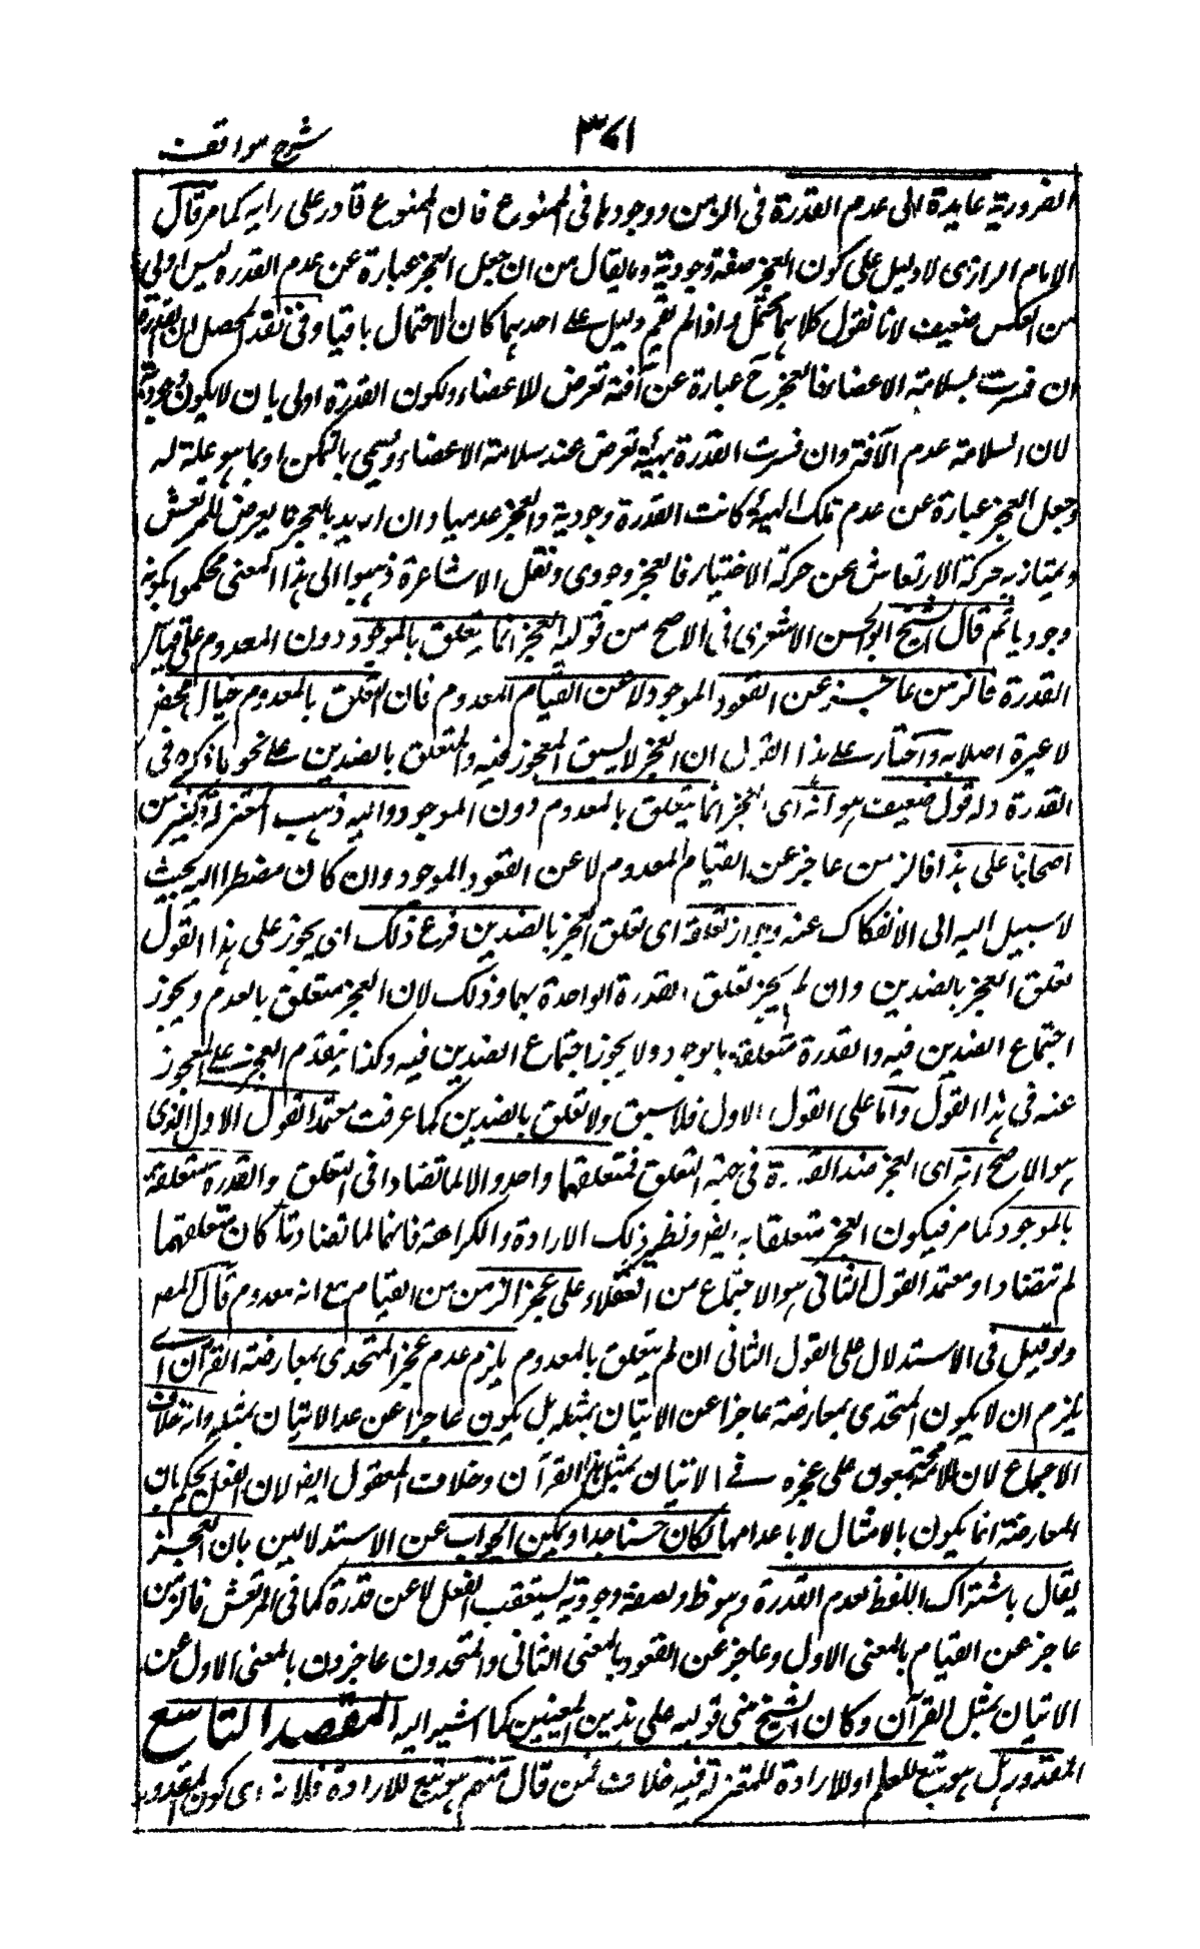 شرح مواقف
٣٧١
الضرورية عايدة الى عدم القدرة فى الزمن ووجودها فى الممنوع فان الممنوع قادر على رايه كما مر قال
الامام الرازى لا دليل على كون العجز صفة وجودية وما يقال من ان جعل العجز عبارة عن عدم القدرة ليس اولى
من العكس ضعيف لانا نقول كلاهما محتمل واذا لم يقم دليل على احدهما كان الاحتمال باقيا وفى نقد المحصل ان القدرة
ان فسرت بسلامة الاعضاء فالعجز ح عبارة عن آفة تعرض للاعضاء ولكون القدرة اولى بان لا يكون وجودية
لان السلامة عدم الآفة وان فسرت القدرة بهيئة تعرض عند سلامة الاعضاء وتسمى بالتمكن او بما هو علة له
وجعل العجز عبارة عن عدم تلك الهيئة كانت القدرة وجودية والعجز عدميا وان اريد بالعجز ما يعرض للمرتعش
ويمتاز به حركة الارتعاش عن حركة الاختيار فالعجز وجودى ونقل الاشاعرة ذهبوا الى هذا المعنى فحكموا بكونه
وجوديا ثم قال الشيخ ابو الحسن الاشعرى فى الاصح من قوليه العجز انما يتعلق بالموجود دون المعدوم على قياس
القدرة فالزمن عاجز عن القعود الموجود لا عن القيام المعدوم فان التعلق بالمعدوم خيال محض
لا عبرة اصلا به واختار على هذا القول ان العجز لا يسبق المعجوز فيه والمتعلق بالضدين على نحو ما ذكره فى
القدرة وله قول ضعيف هو انه اى العجز انما يتعلق بالمعدوم دون الموجود واليه ذهب المعتزلة وكثير من
اصحابنا على هذا فالزمن عاجز عن القيام المعدوم لا عن القعود الموجود وان كان مضطرا اليه بحيث
لا سبيل اليه الى الانفكاك عنه وجواز تعلقه اى تعلق العجز بالضدين فرع ذلك اى يجوز على هذا القول
تعلق العجز بالضدين وان لم يجز تعلق القدرة الواحدة بهما وذلك لان العجز متعلق بالعدم ويجوز
اجتماع الضدين فيه والقدرة متعلقة بالوجود ولا يجوز اجتماع الضدين فيه وكذا يتقدم العجز على المعجوز
عنه فى هذا القول واما على القول الاول فلا سبق ولا تعلق بالضدين كما عرفت معتمد القول الاول الذى
هو الاصح انه اى العجز ضد القدرة فى جهة التعلق فمتعلقهما واحد والا لما تضادا فى التعلق والقدرة متعلقة
بالموجود كما مر فيكون العجز متعلقا به ايضا ونظير ذلك الارادة والكراهة فانهما لما تضادتا كان متعلقهما
لم تتضادا ومعتمد القول الثانى هو الاجتماع من العقلاء على عجز الزمن من القيام مع انه معدوم قال المصـ
ولو قيل فى الاستدلال على القول الثانى ان لم يتعلق بالمعدوم يلزم عدم عجز المتحدى بمعارضة القرآن اى
يلزم ان لا يكون المتحدى بمعارضة عاجزا عن الاتيان بمثله بل يكون عاجزا عن عدم الاتيان بمثله وانه خلاف
الاجماع لان الامة مجتمعون على عجزه فى الاتيان بمثل هذا القرآن وخلاف المعقول ايضا لان العقل يحكم بان
المعارضة انما يكون بالامثال لا باعدامها لكان حسنا جدا ويمكن الجواب عن الاستدلالين بان العجز
يقال باشتراك اللفظ لعدم القدرة وهو ظ ولصفة وجودية يستعقب الفعل لا عن قدرة كما فى المرتعش فالزمن
عاجز عن القيام بالمعنى الاول وعاجز عن القعود بالمعنى الثانى والمتحدون عاجزون بالمعنى الاول عن
الاتيان بمثل القرآن وكان الشيخ بنى قوليه على هذين المعنيين كما اشير اليه المقصد التاسع
المقدور هل هو تبع للعلم او للارادة للمعتزلة فيه خلاف فمن قال منهم هو تبع للارادة فلانه اى كون المقدور